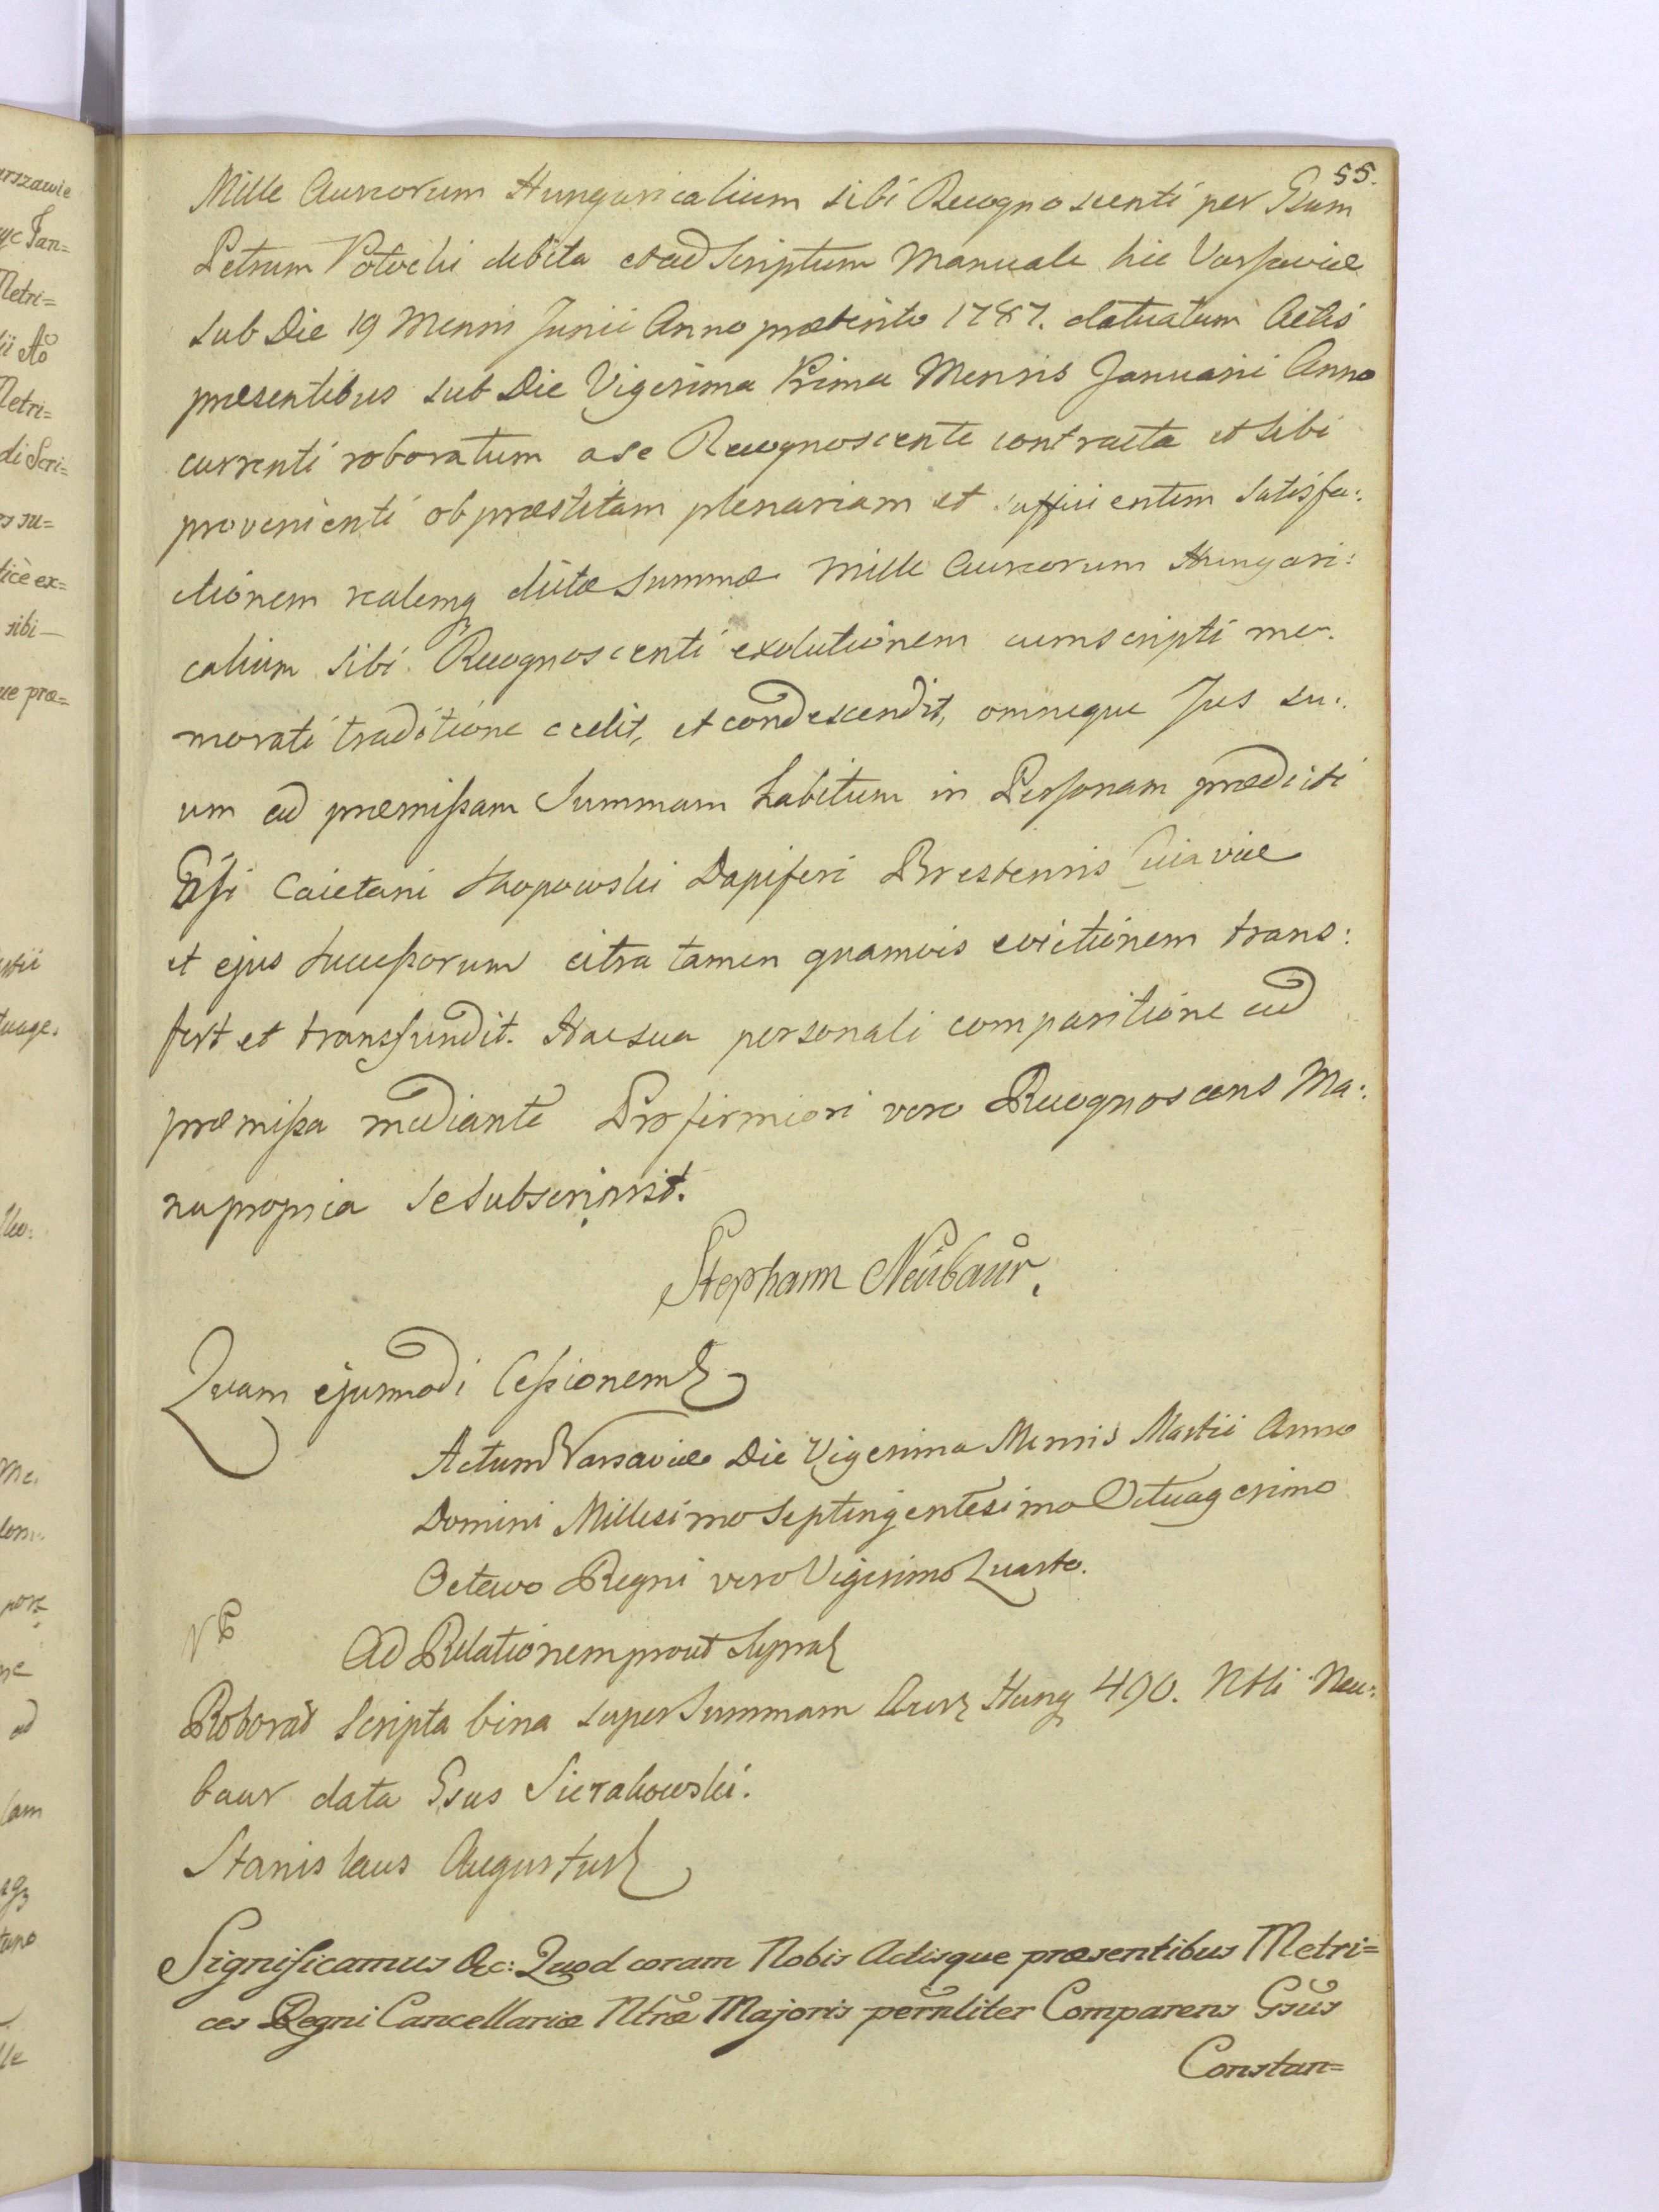 55.
Mille Aureorum Hungaricalium sibi Recognoscenti per Gsum
Petrum Potocki debita et ad Scriptum Manuale hic Varsaviae
sub Die 19 Mensis Junii Anno praeterito 1787. datuatum Actis
praesentibus sub Die Vigesima Prima Mensis Januarii Anno
currenti roboratum a se Recognoscente contracta et sibi
provenienti ob praestitam plenariam et sufficientem satisfa:
ctionem realemq dictae Summae Mille Aureorum Hungari:
calium sibi Recognoscenti exolutionem cum scripti me:
morati traditione cedit, et condescendit, omneque Jus su:
um ad praemissam Summam habitum in Personam praedicti
Caietani Dapiferi Brestensis Cuiaviae
et ejus Successorum citra tamen quamvis evictionem trans:
fert et transfundit. Hac sua personali comparitione ad
praemissa mediante Pro firmiori vero Recognoscens Ma:
nu propria se subscripsit.
Stephann Neübaur.
Quam ejusmodi Cessionem
Actum Varsaviae Die Vigesima Mensis Martii Anno
Domini Millesimo Septingentesimo Octuagesimo
Octavo Regni vero Vigesimo Quarto.
Ad Relationem prout Supra
Roborat Scripta bina super Summam Aur Hung 490. Nbli Neu:
baur data Gsus Sierakowski.
Stanislaus Augustus
Significamus &c: Quod coram Nobis Actisque praesentibus Metri=
ces Regni Cancellariae Ntrae Majoris pernliter Comparens Gsus
Constan=